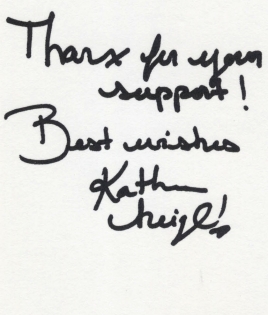 Thanx for your
support!
Best wishes
Kath
Heigl!